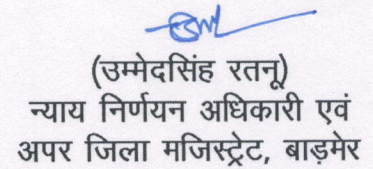 (उम्मेदसिंह रतनू)
न्याय निर्णयन अधिकारी एवं
अपर जिला मजिस्ट्रेट, बाड़मेर